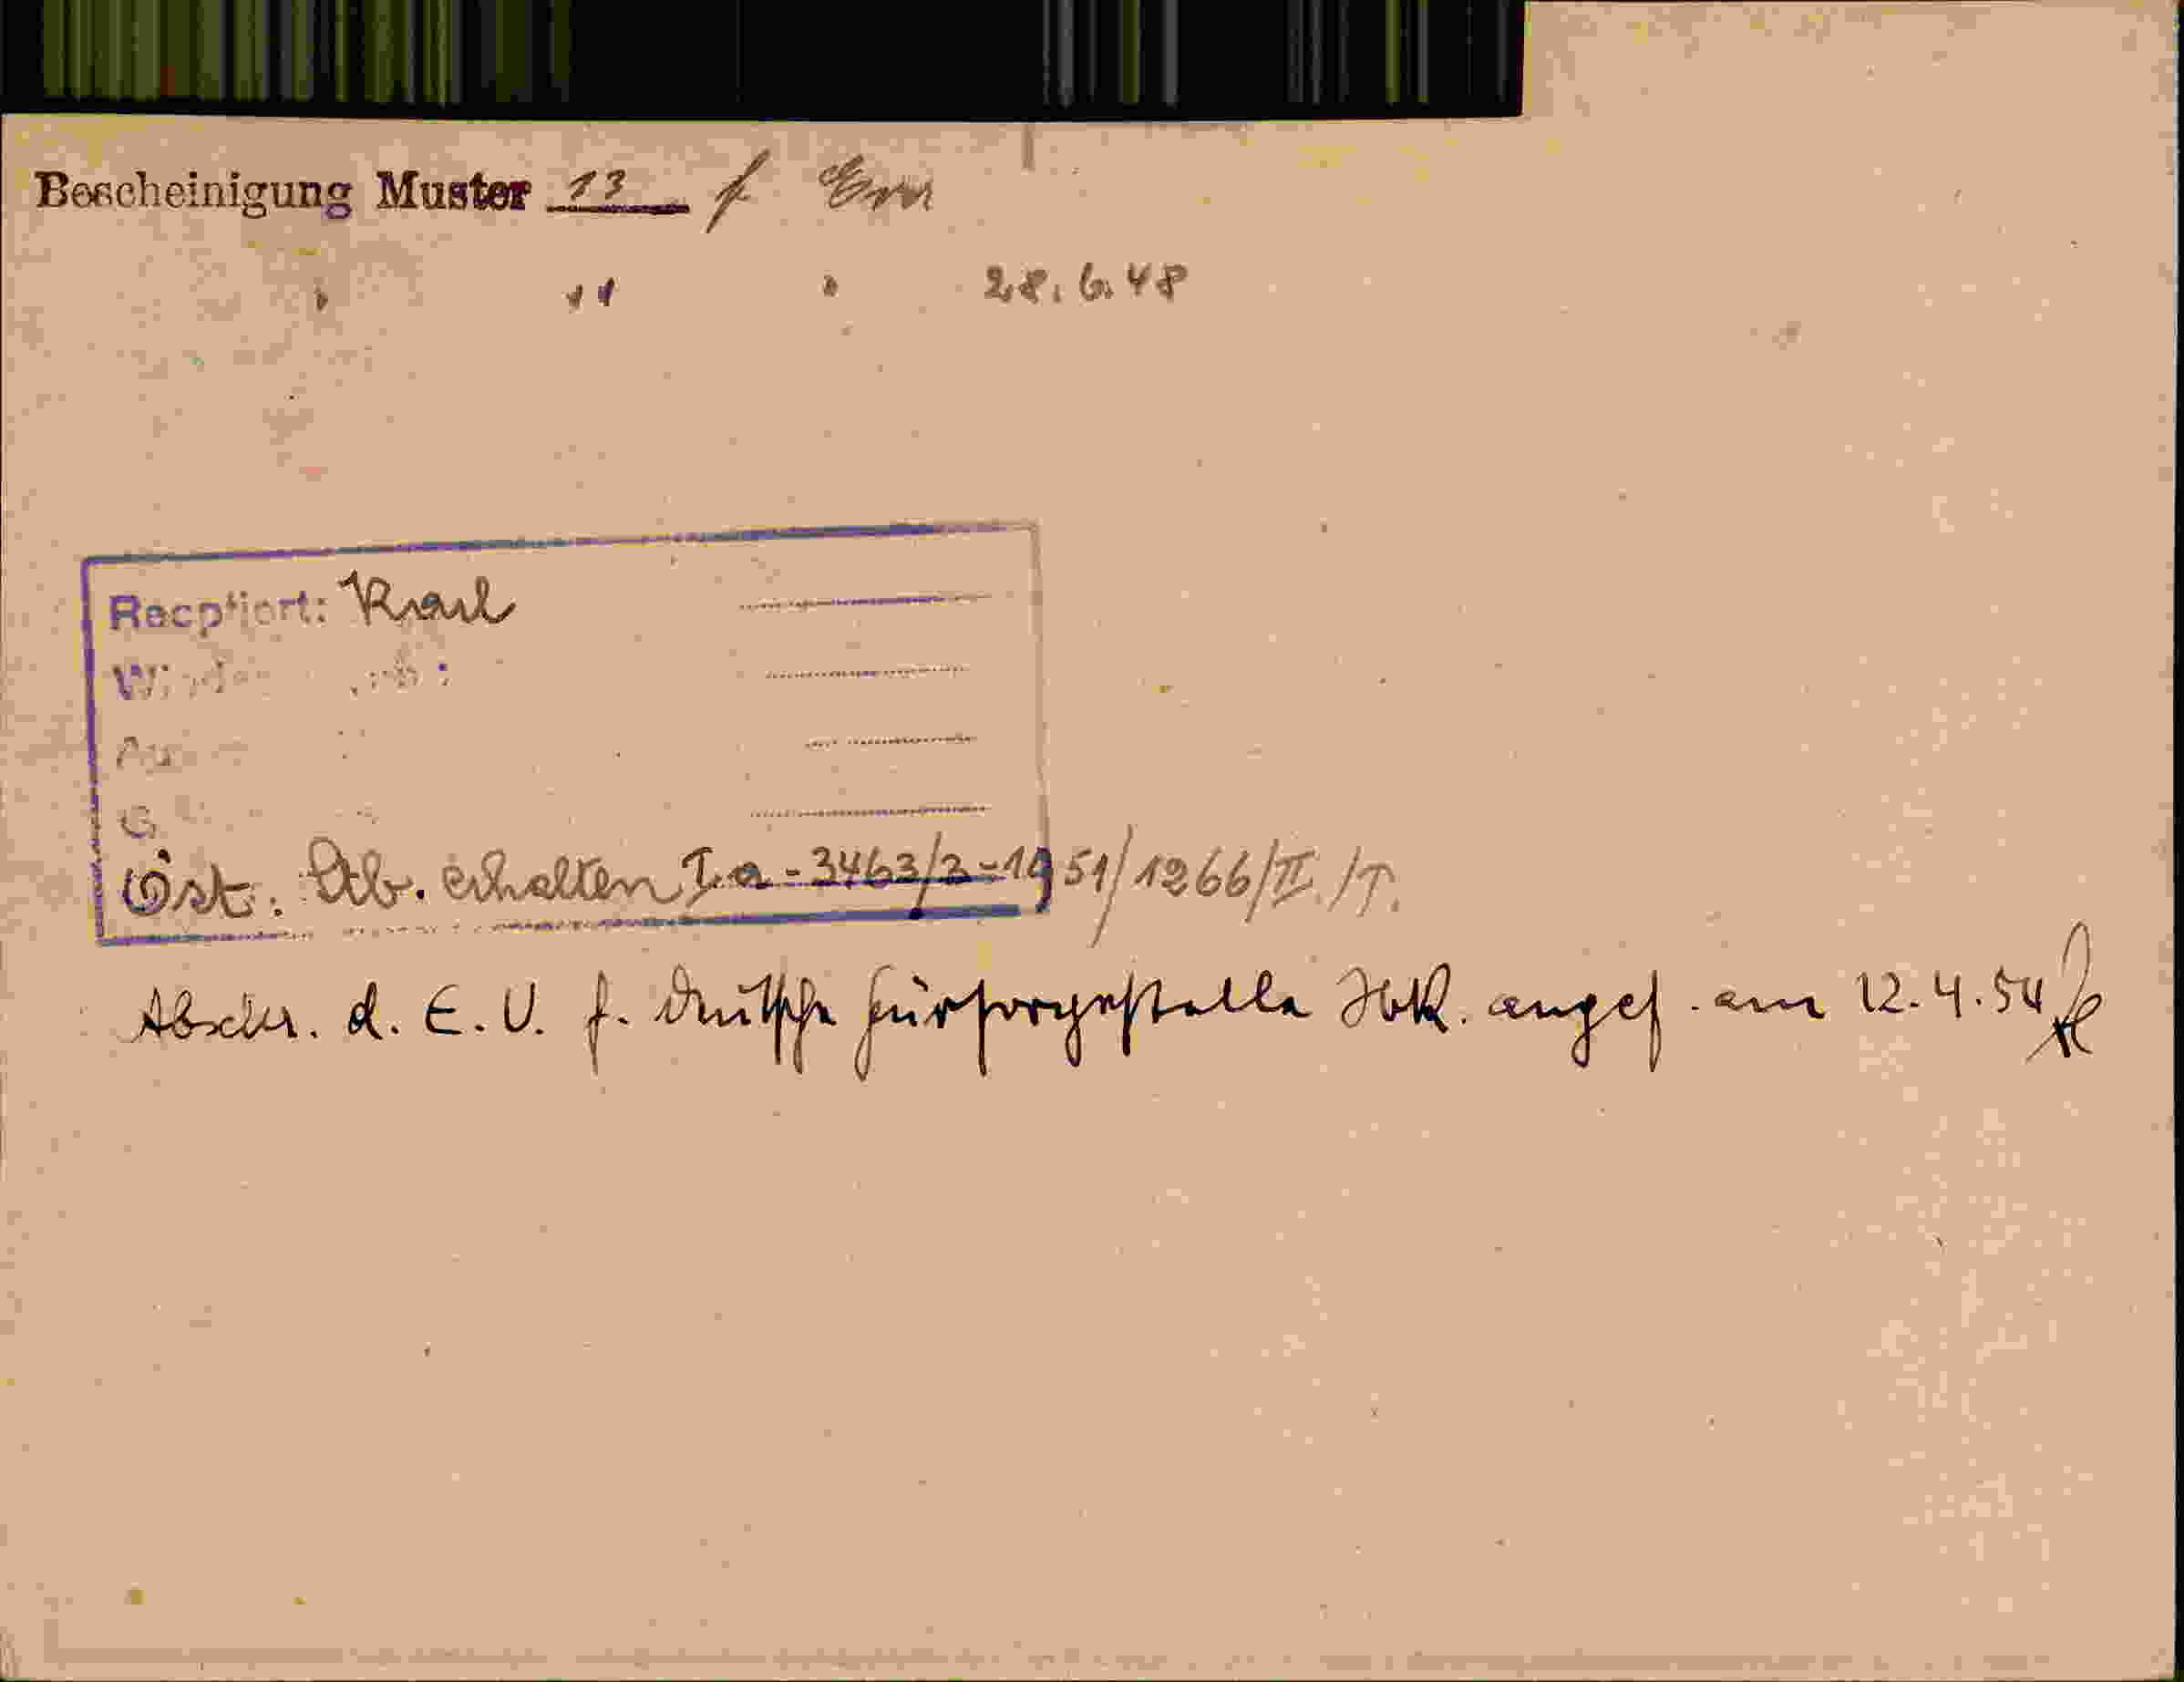 Bescheinigung Muster 13 f. Erw
" 11 " 28.6.48
Recptiert: Karl
Öst. Stb. erhalten I.a - 3463/3-1951/1266/II./T.
Abschr. d. E.V. f. deutsche Fürsorgestelle Ibk. angef. am 12.4.54